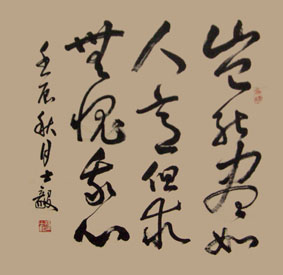 岂能尽如
人意但求
无愧我心
壬辰秋月士毅